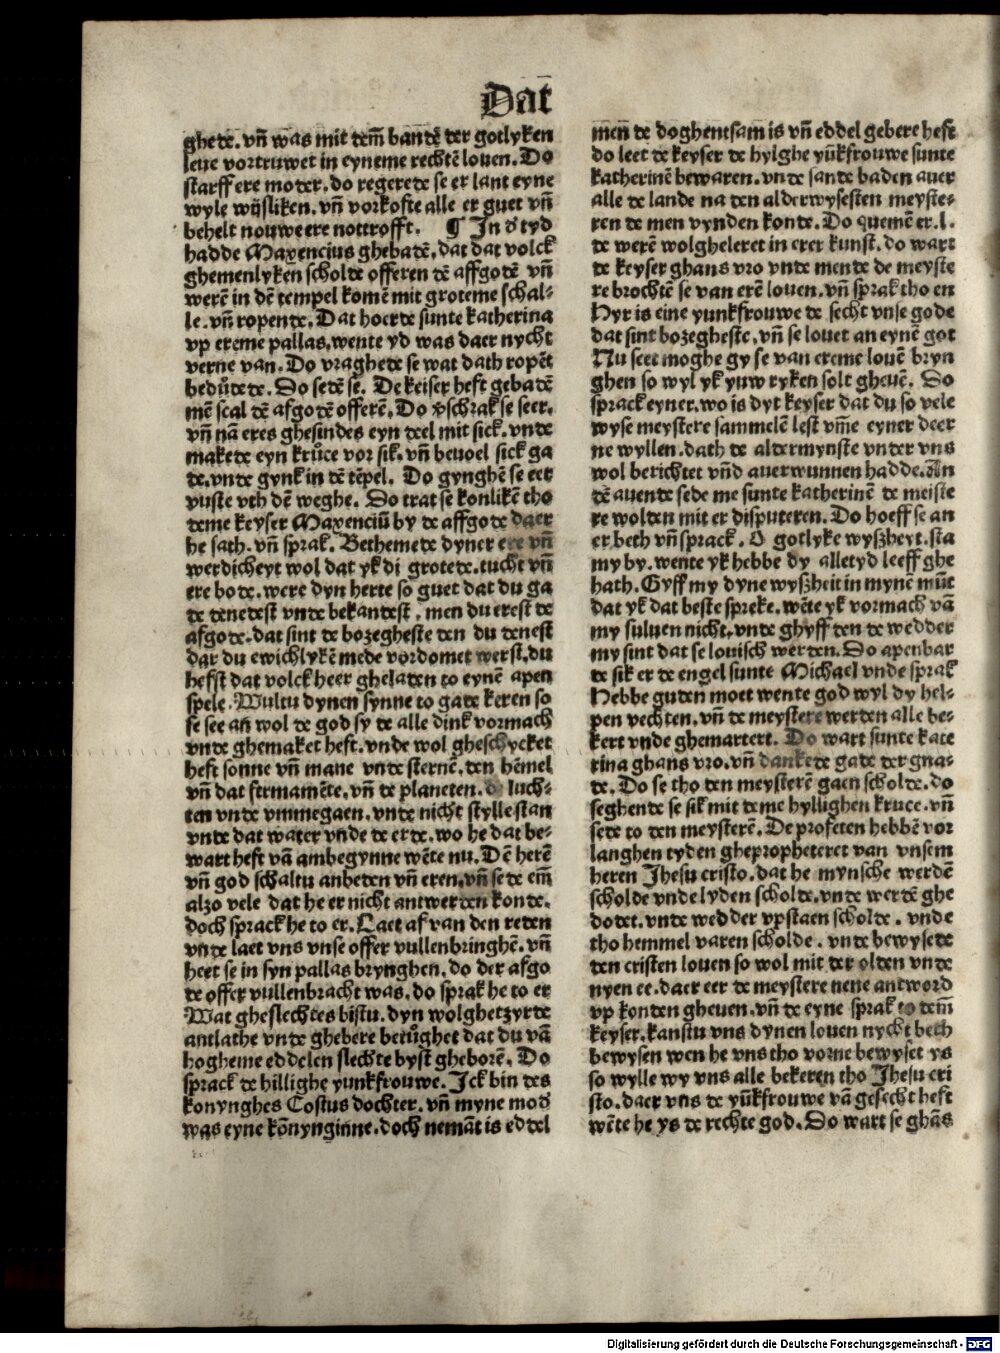 Dat
ghede. vn̄ was mit dem̄ bandē der gotlyken
leue vortruwet in eyneme rechtē louen. Do
starff ere moder. do regerede se er lant eyne
wyle wijsliken. vn̄ vorkofte alle er guet vn̄
behelt nouwe ere nottrofft. ¶ In d' tyd
hadde Maxencius ghebadē. dat dat volck
ghemenlyken scholde offeren dē affgodē vn̄
werē in dē tempel komē mit groteme schal-
le. vn̄ ropende. Dat hoerde sunte katherina
vp ereme pallas. wente yd was daer nycht
verne van. Do vraghede se wat dath ropēt
bedůdede. So sedē se. De keiser heft gebadē
mē scal dē afgodē offerē. Do v̓schrak se seer.
vn̄ nā eres ghesindes eyn deel mit sick. vnde
makede eyn krůce vor sik. vn̄ beuoel sick ga
de. vnde gynk in dē tēpel. Do gynghē se eer
vuste vth dē weghe. So trat se konlikē tho
deme keyser Maxenciū by de affgode daer
he sath. vn̄ sprak. Bethemede dyner ere vn̄
werdicheyt wol dat yk di grotede. tucht vn̄
ere bode. were dyn herte so guet dat du ga
de denedest vnde bekandest. men du erest de
afgode. dat sint de bozegheste den du denest
dar du ewichlykē mede vordomet werst. du
hefst dat volck heer gheladen to eynē apen
spele. Wultu dynen synne to gade keren so
se see an̄ wol de god sy de alle dink vormach
vnde ghemaket heft. vnde wol gheschycket
heft sonne vn̄ mane vnde sternē. den hēmel
vn̄ dat fermamēte. vn̄ de planeten. d' luch-
ten vnde vmmegaen. vnde nicht stylle stan
vnde dat water vnde de erde. wo he dat be-
wart heft vā ambegynne wēte nu. Dē herē
vn̄ god schaltu anbeden vn̄ eren. vn̄ sede em̄
alzo vele dat he er nicht antwerden konde.
doch sprack he to er. Laet af van den reden
vnde laet vns vnse offer vullenbringhē. vn̄
heet se in syn pallas brynghen. do der afgo
de offer vullenbracht was. do sprak he to er
Wat gheslechtes bistu. dyn wolghetzyrde
antlathe vnde ghebere betůghet dat du vā
hogheme eddelen slechte byst gheborē. Do
sprack de hillighe yunkfrouwe. Ick bin des
konynghes Costus dochter. vn̄ myne mod'
was eyne kōnynginne. doch nemāt is eddel
men̄ de doghentsam is vn̄ eddel gebere heft
do leet de keyser de hylghe yūkfrouwe sunte
katherinē bewaren. vnde sande baden auer
alle de lande na den alderwysesten meyste-
ren de men vynden konde. Do quemē er. l.
de werē wolgheleret in erer kunst. do wart
de keyser ghans vro vnde mende de meyste
re brochtē se van erē louen. vn̄ sprak tho en
Hyr is eine yunkfrouwe de secht vnse gode
dat sint bozegheste. vn̄ se louet an eynē got
Nu seet moghe gy se van ereme louē bryn
ghen so wyl yk yuw ryken solt gheuē. Do
sprack eyner. wo is dyt keyser dat du so vele
wyse meystere sammelē lest vm̄e eyner deer
ne wyllen. dath de aldermynste vnder vns
wol berichtet vn̄d auerwunnen hadde. An
dē auende sede me sunte katherinē de meiste
re wolden mit er disputeren. Do hoeff se an
er beth vn̄ sprack. O gotlyke wyßheyt. sta
my by. wente yk hebbe dy alletyd leeff ghe
hath. Gyff my dyne wyßheit in mynē mūt
dat yk dat beste spreke. wēte yk vormach vā
my suluen nicht. vnde ghyff den de wedder
my sint dat se louisch werden. Do apenbar
de sik er de engel sunte Michael vnde sprak
Hebbe guden moet wente god wyl dy hel-
pen vechten. vn̄ de meystere werden alle be-
kert vnde ghemartert. Do wart sunte kate
rina ghans vro. vn̄ dankede gade der gna-
de. Do se tho den meysterē gaen scholde. do
seghende se sik mit deme hyllighen kruce. vn̄
sede to den meysterē. De profeten hebbē vor
langhen tyden ghepropheteret van vnsem
heren Jhesu cristo. dat he mynsche werdē
scholde vnde lyden scholde. vnde werdē ghe
dodet. vnde wedder vpstaen scholde. vnde
tho hemmel varen scholde. vnde bewysede
den cristen louen so wol mit der olden vnde
nyen ee. daer eer de meystere nene antword
vp konden gheuen. vn̄ de eyne sprak to dem̄
keyser. kanstu vns dynen louen nycht beth
bewysen wen he vns tho vorne bewyset ys
so wylle wy vns alle bekeren tho Jhesu cri
sto. daer vns de yūkfrouwe vā gesecht heft
wēte he ys de rechte god. Do wart se ghās
Digitalisierung gefördert durch die Deutsche Forschungsgemeinschaft - DFG